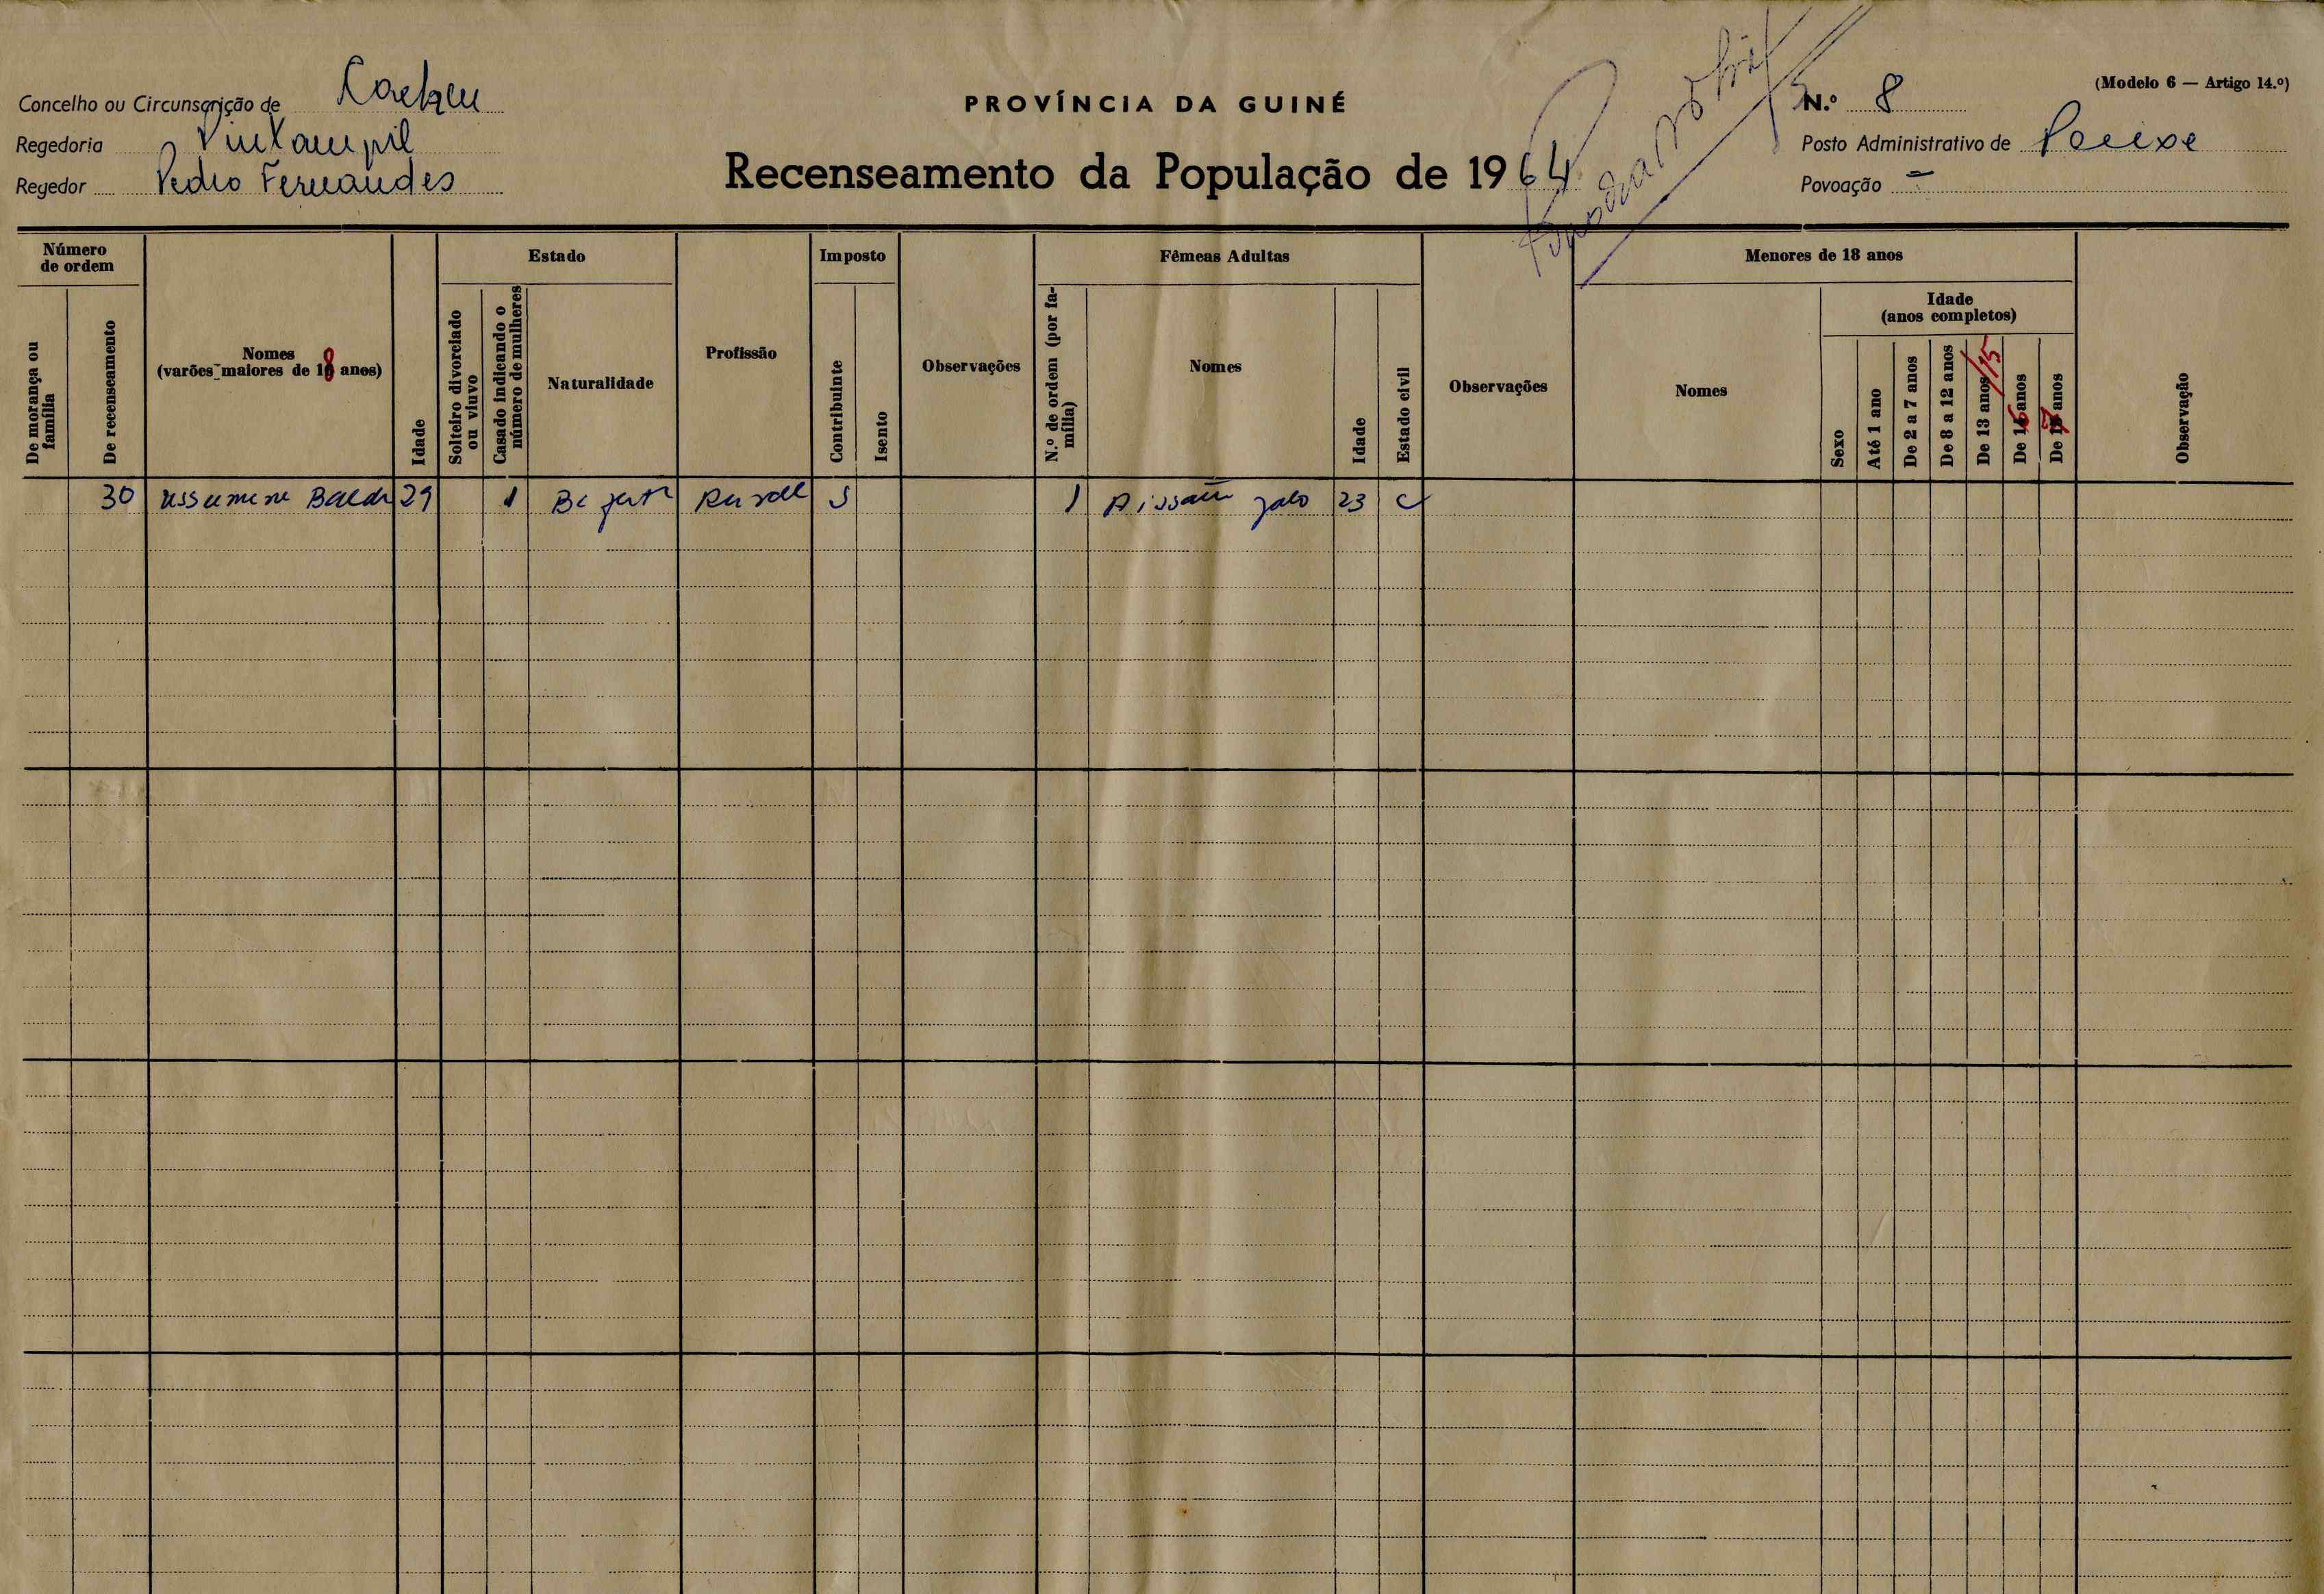 (Modelo 6 — Artigo 14.º)
Concelho ou Circunscrição de
PROVÍNCIA DA GUINÉ
N.º 8
Regedoria
Posto Administrativo de
Regedor Pedro Fernandes
Recenseamento da População de 1964
Povoação –
Número de ordem
De morança ou família
De recenseamento
Nomes
(varões maiores de 18 anos)
Idade
Estado
Solteiro divorciado ou viuvo
Casado indicando o número de mulheres
Naturalidade
Profissão
Imposto
Contribuinte
Isento
Observações
Fêmeas Adultas
N.º de ordem (por família)
Nomes
Idade
Estado civil
Observações
Menores de 18 anos
Nomes
Idade
(anos completos)
Sexo
Até 1 ano
De 2 a 7 anos
De 8 a 12 anos
De 13 anos /15
De 16 anos
De 17 anos
Observação
30 29 1 S 1 23 C